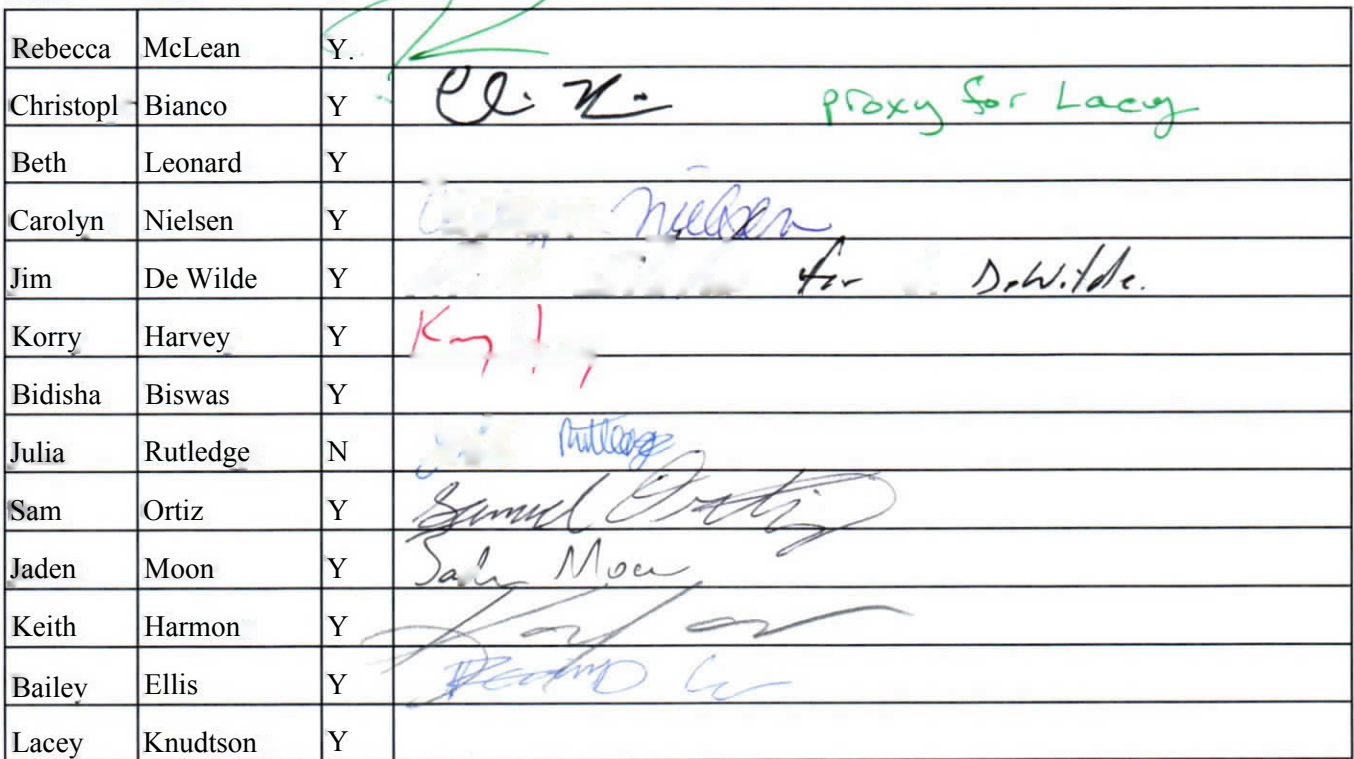 Rebecca McLean Y.
Christopl Bianco Y proxy for Lacey
Beth Leonard Y
Carolyn Nielsen Y Nielsen
Jim De Wilde Y for DeWilde.
Korry Harvey Y
Bidisha Biswas Y
Julia Rutledge N Rutledge
Sam Ortiz Y Samuel Ortiz
Jaden Moon Y Moon
Keith Harmon Y
Bailey Ellis Y
Lacey Knudtson Y